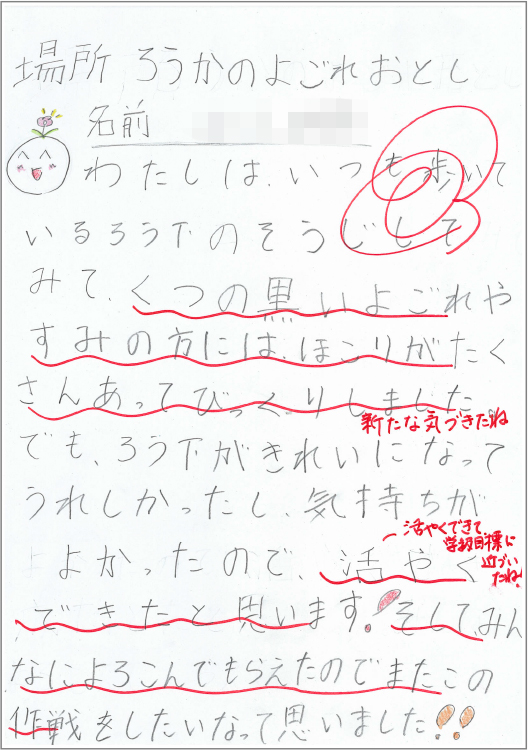 場所 ろうかのよごれおとし
名前
わたしは、いつも歩いて
いるろう下のそうじして
みて、くつの黒いよごれや
すみの方には、ほこりがたく
さんあってびっくりしました。
新たな気づきたね
でも、ろう下がきれいになって
うれしかったし、気持ちが
活やくできて、
学級目標に
近づい
たね!
よかったので、活やく
できたと思います。そして、みん
なによろこんでもらえたのでまたこの
作戦をしたいなって思いました!!